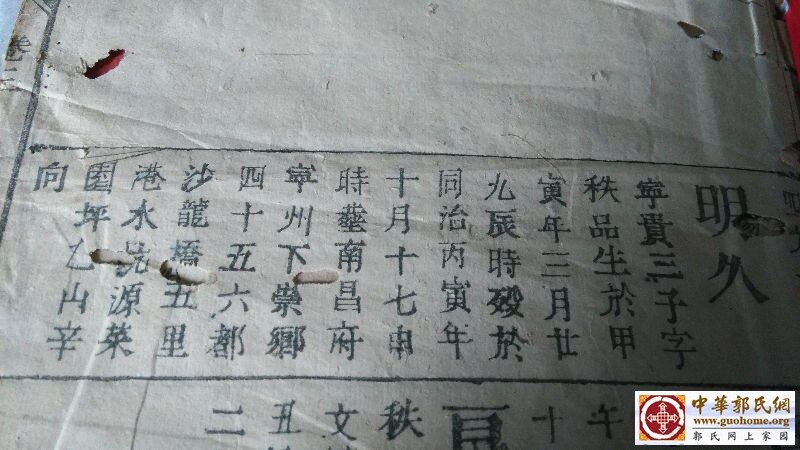 明久
寧貴三子字
秩品生於甲
寅年三月廿
九辰時殁於
同治丙寅年
十月十七申
時塟南昌府
寧州下崇鄉
四十五六都
沙龍橋五里
港水源菜
園坪乙山辛
向
卷二
午
十
秩
文
丑
二
中華郭氏網
www.guohome.org
郭氏网上家园